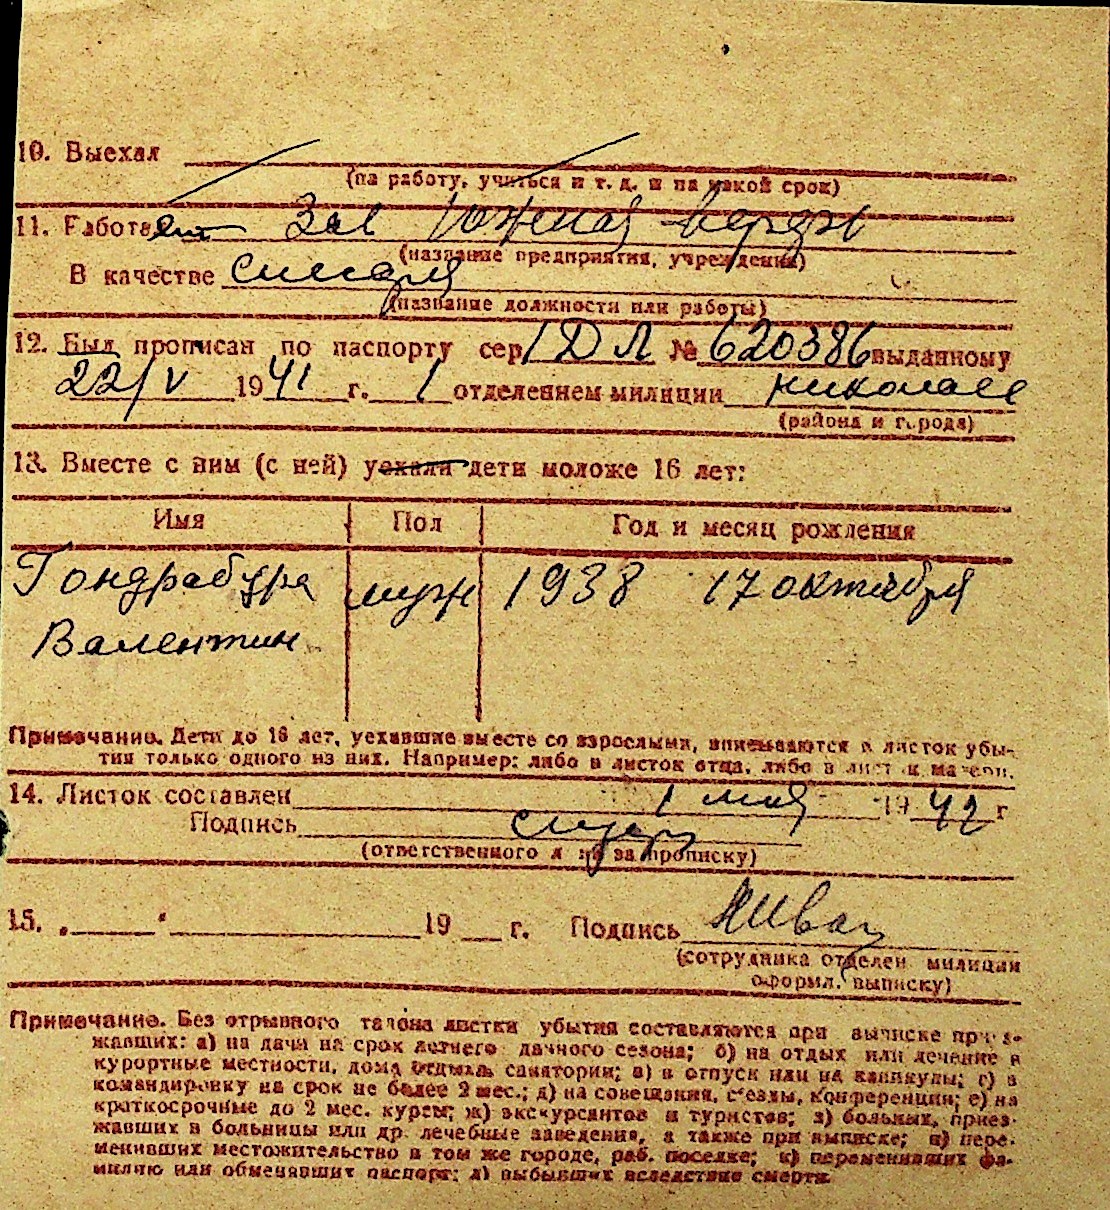 10. Выехал
(на работу, учиться и т. д. и на какой срок)
11. Работает Зав Южная верфь
(название предприятия, учреждения)
В качестве слесаря
(название должности или работы)
12. Был прописан по паспорту сер I ДЛ № 620386 выданному
22/V 1941 г. 1 отделением милиции николаев
(района и города)
13. Вместе с ним (с ней) уехали дети моложе 16 лет:
Имя Пол Год и месяц рождения
Гондрабура муж 1938 17 октября
Валентин
Примечание. Дети до 16 лет, уехавшие вместе со взрослыми, вписываются в листок убы-
тия только одного из них. Например: либо в листок отца, либо в листок матери.
14. Листок составлен 1 мая 1942 г
Подпись
(ответственного за прописку)
15. „ “ 19 г. Подпись
(сотрудника отделен. милиции
оформл. выписку)
Примечание. Без отрывного талона листки убытия составляются при выписке приез-
жавших: а) на дачи на срок летнего дачного сезона; б) на отдых или лечение в
курортные местности, дома отдыха, санатории; в) в отпуск или на каникулы; г) в
командировку на срок не более 2 мес.; д) на совещания, с'езды, конференции; е) на
краткосрочные до 2 мес. курсы; ж) экскурсантов и туристов; з) больных, приез-
жавших в больницы или др. лечебные заведения, а также при выписке; и) пере-
менивших местожительство в том же городе, раб. поселке; к) переменивших фа-
милию или обменявших паспорт; л) выбывших вследствие смерти.